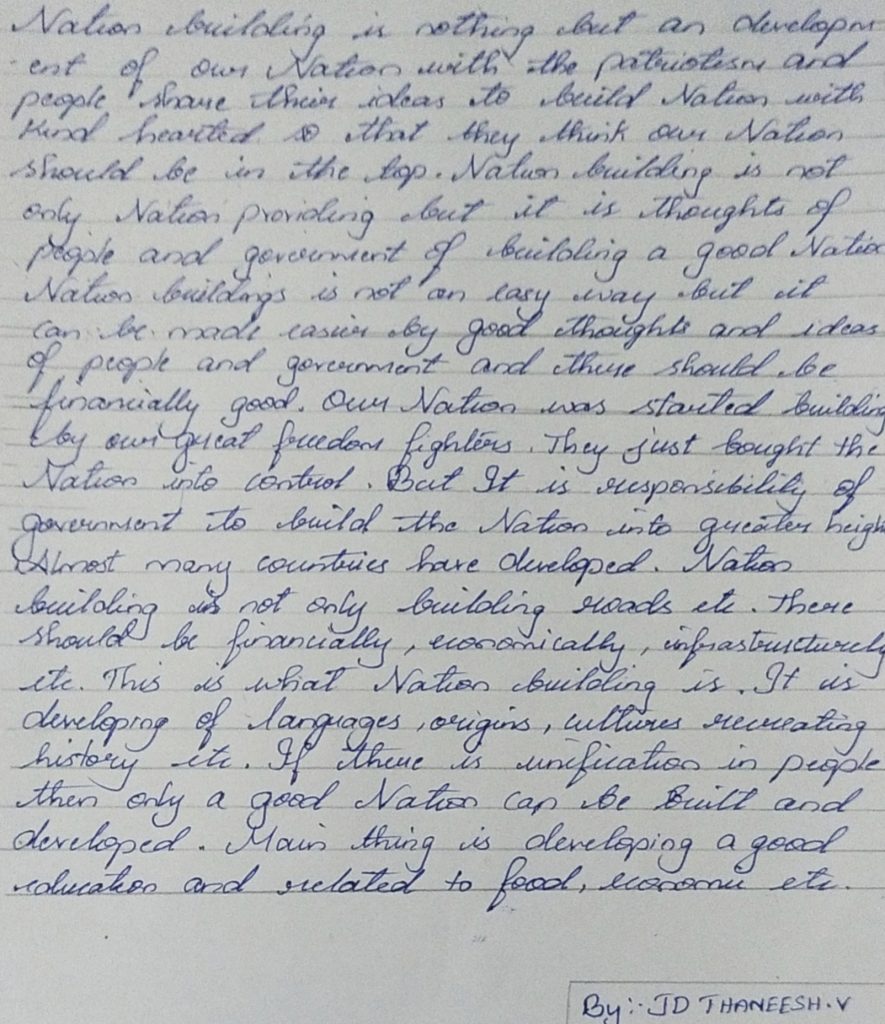 Nation building is nothing but an developm
ent of our Nation with the patriotism and
people share their ideas to build Nation with
Kind hearted so that they think our Nation
should be in the top. Nation building is not
only Nation providing but it is thoughts of
people and government of building a good Nation
Nation buildings is not an easy way but it
can be made easier by good thoughts and ideas
of people and government and there should be
financially good. Our Nation was started building
by our great freedom fighters. They just bought the
Nation into control. But It is responsibility of
government to build the Nation into greater heigh
Almost many countries have developed. Nation
building is not only building roads etc. There
should be financially, economically, infrastructurely
etc. This is what Nation building is. It is
developing of languages, origins, cultures recreating
history etc. If there is unification in people
then only a good Nation can be Built and
developed. Main thing is developing a good
education and related to food, economic etc.
By:- JD THANEESH.V